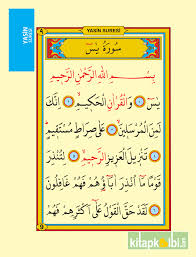 YASİN SURESİ
YASİN
SURESİ
سُورَةُ يٰسٓ
بِسْمِ اللّٰهِ الرَّحْمٰنِ الرَّحِيمِ
يٰسٓ وَالْقُرْاٰنِ الْحَكِيمِ اِنَّكَ
لَمِنَ الْمُرْسَلِينَ عَلٰى صِرَاطٍ مُسْتَقِيمٍ
تَنْزِيلَ الْعَزِيزِ الرَّحِيمِ لِتُنْذِرَ
قَوْمًا مَٓا اُنْذِرَ اٰبَٓاؤُهُمْ فَهُمْ غَافِلُونَ
لَقَدْ حَقَّ الْقَوْلُ عَلٰٓى اَكْثَرِهِمْ فَهُمْ
kitapkalbi